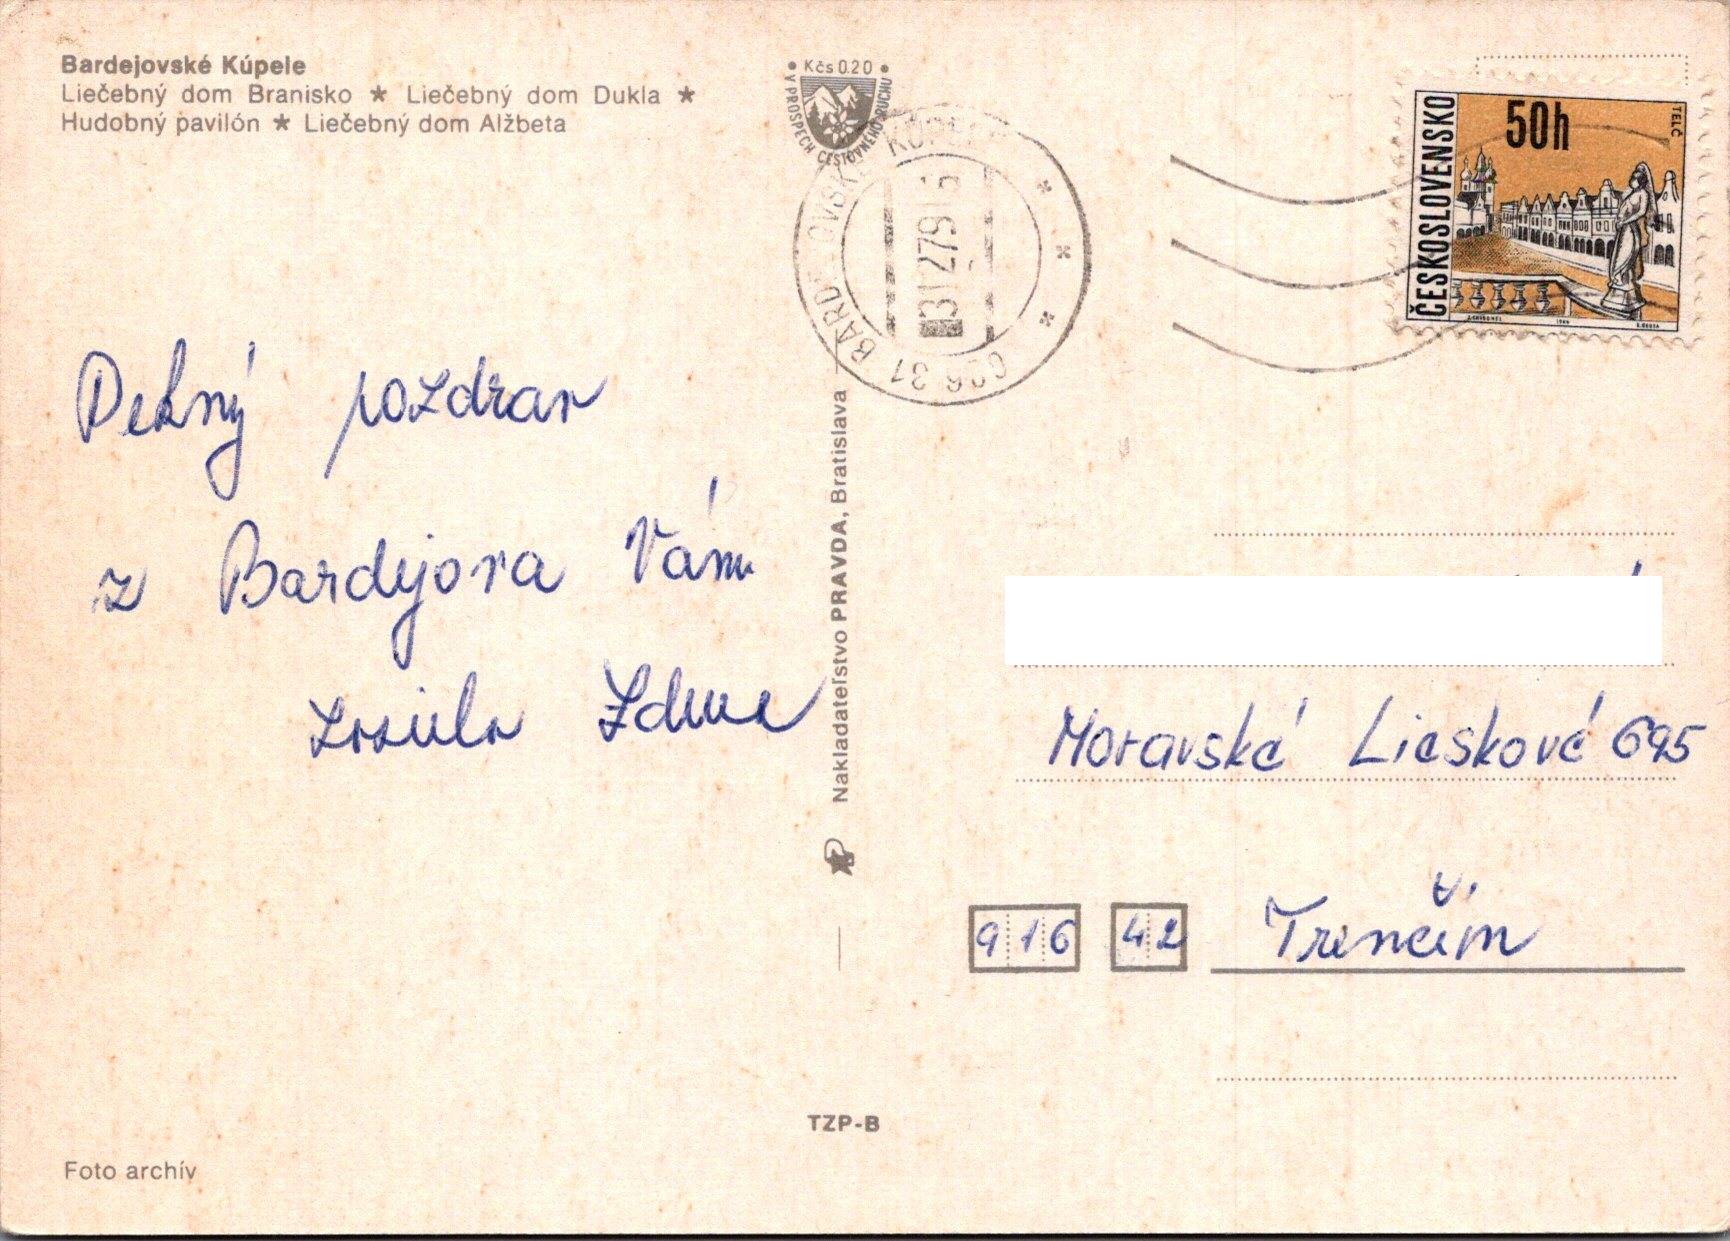 Bardejovské Kúpele
Liečebný dom Branisko ★ Liečebný dom Dukla ★
Hudobný pavilón ★ Liečebný dom Alžbeta
• Kčs 0.20 •
V PROSPECH CESTOVNÉHO RUCHU
BARDEJOVSKÉ KÚPELE
31.12.79 16
086 31
ČESKOSLOVENSKO
50h
TELČ
Pekný pozdrav
z Bardejova Vám
zosiela
Nakladateľstvo PRAVDA, Bratislava
Moravské Lieskové 695
916 42 Trenčín
TZP-B
Foto archív